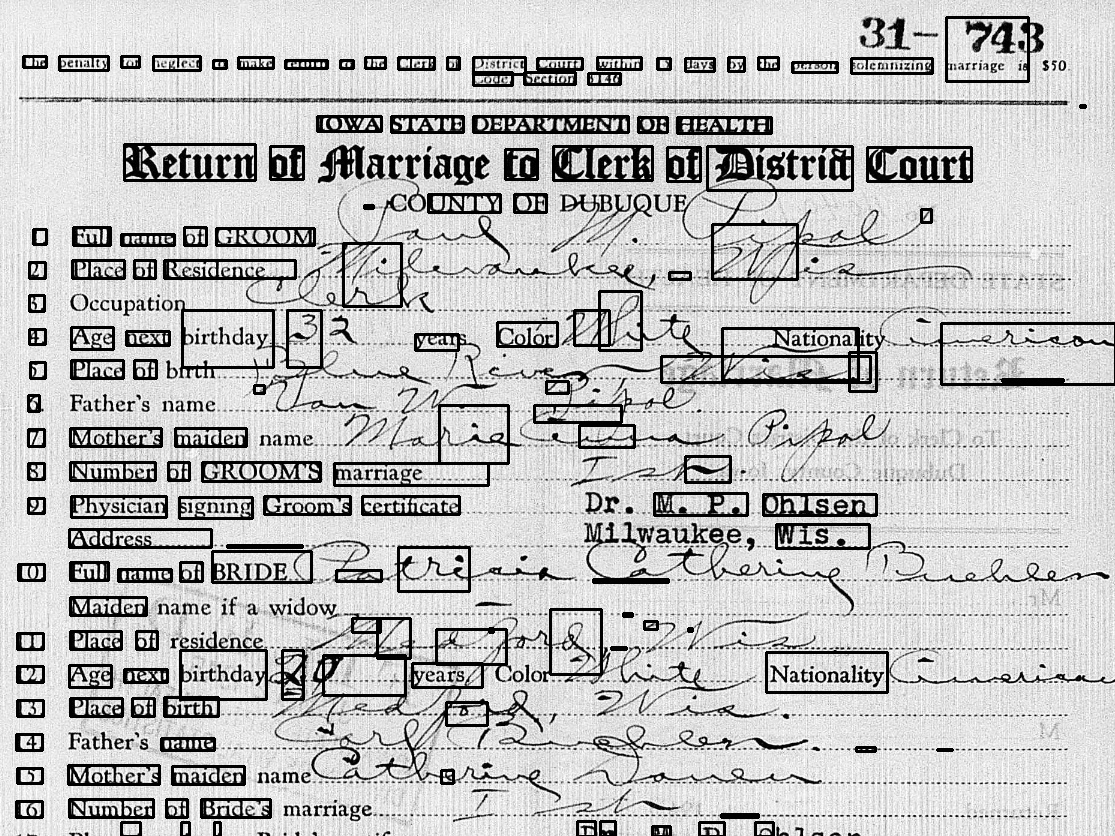 31- 743
The penalty for neglect to make return to the Clerk of District Court within 15 days by the person solemnizing marriage is $50.
Code, Section
IOWA STATE DEPARTMENT OF HEALTH
Return of Marriage to Clerk of District Court
COUNTY OF DUBUQUE
1 Full name of GROOM Paul M. Pipal
2 Place of Residence Milwaukee, Wis
3 Occupation Clerk
4 Age next birthday 32 years Color White Nationality American
5 Place of birth Blue River, Wis
6 Father's name Van W. Pipal.
7 Mother's maiden name Marie Pipal
8 Number of GROOM'S marriage 1st
9 Physician signing Groom's certificate Dr. M. P. Ohlsen
Address Milwaukee, Wis.
10 Full name of BRIDE Patricia Catherine Buehler
Maiden name if a widow —
11 Place of residence Medford, Wis
12 Age next birthday 20 years Color White Nationality American
13 Place of birth Medford, Wis.
14 Father's name Carl Buehler.
15 Mother's maiden name Catherine
16 Number of Bride's marriage 1st
Dr. M. P. Ohlsen